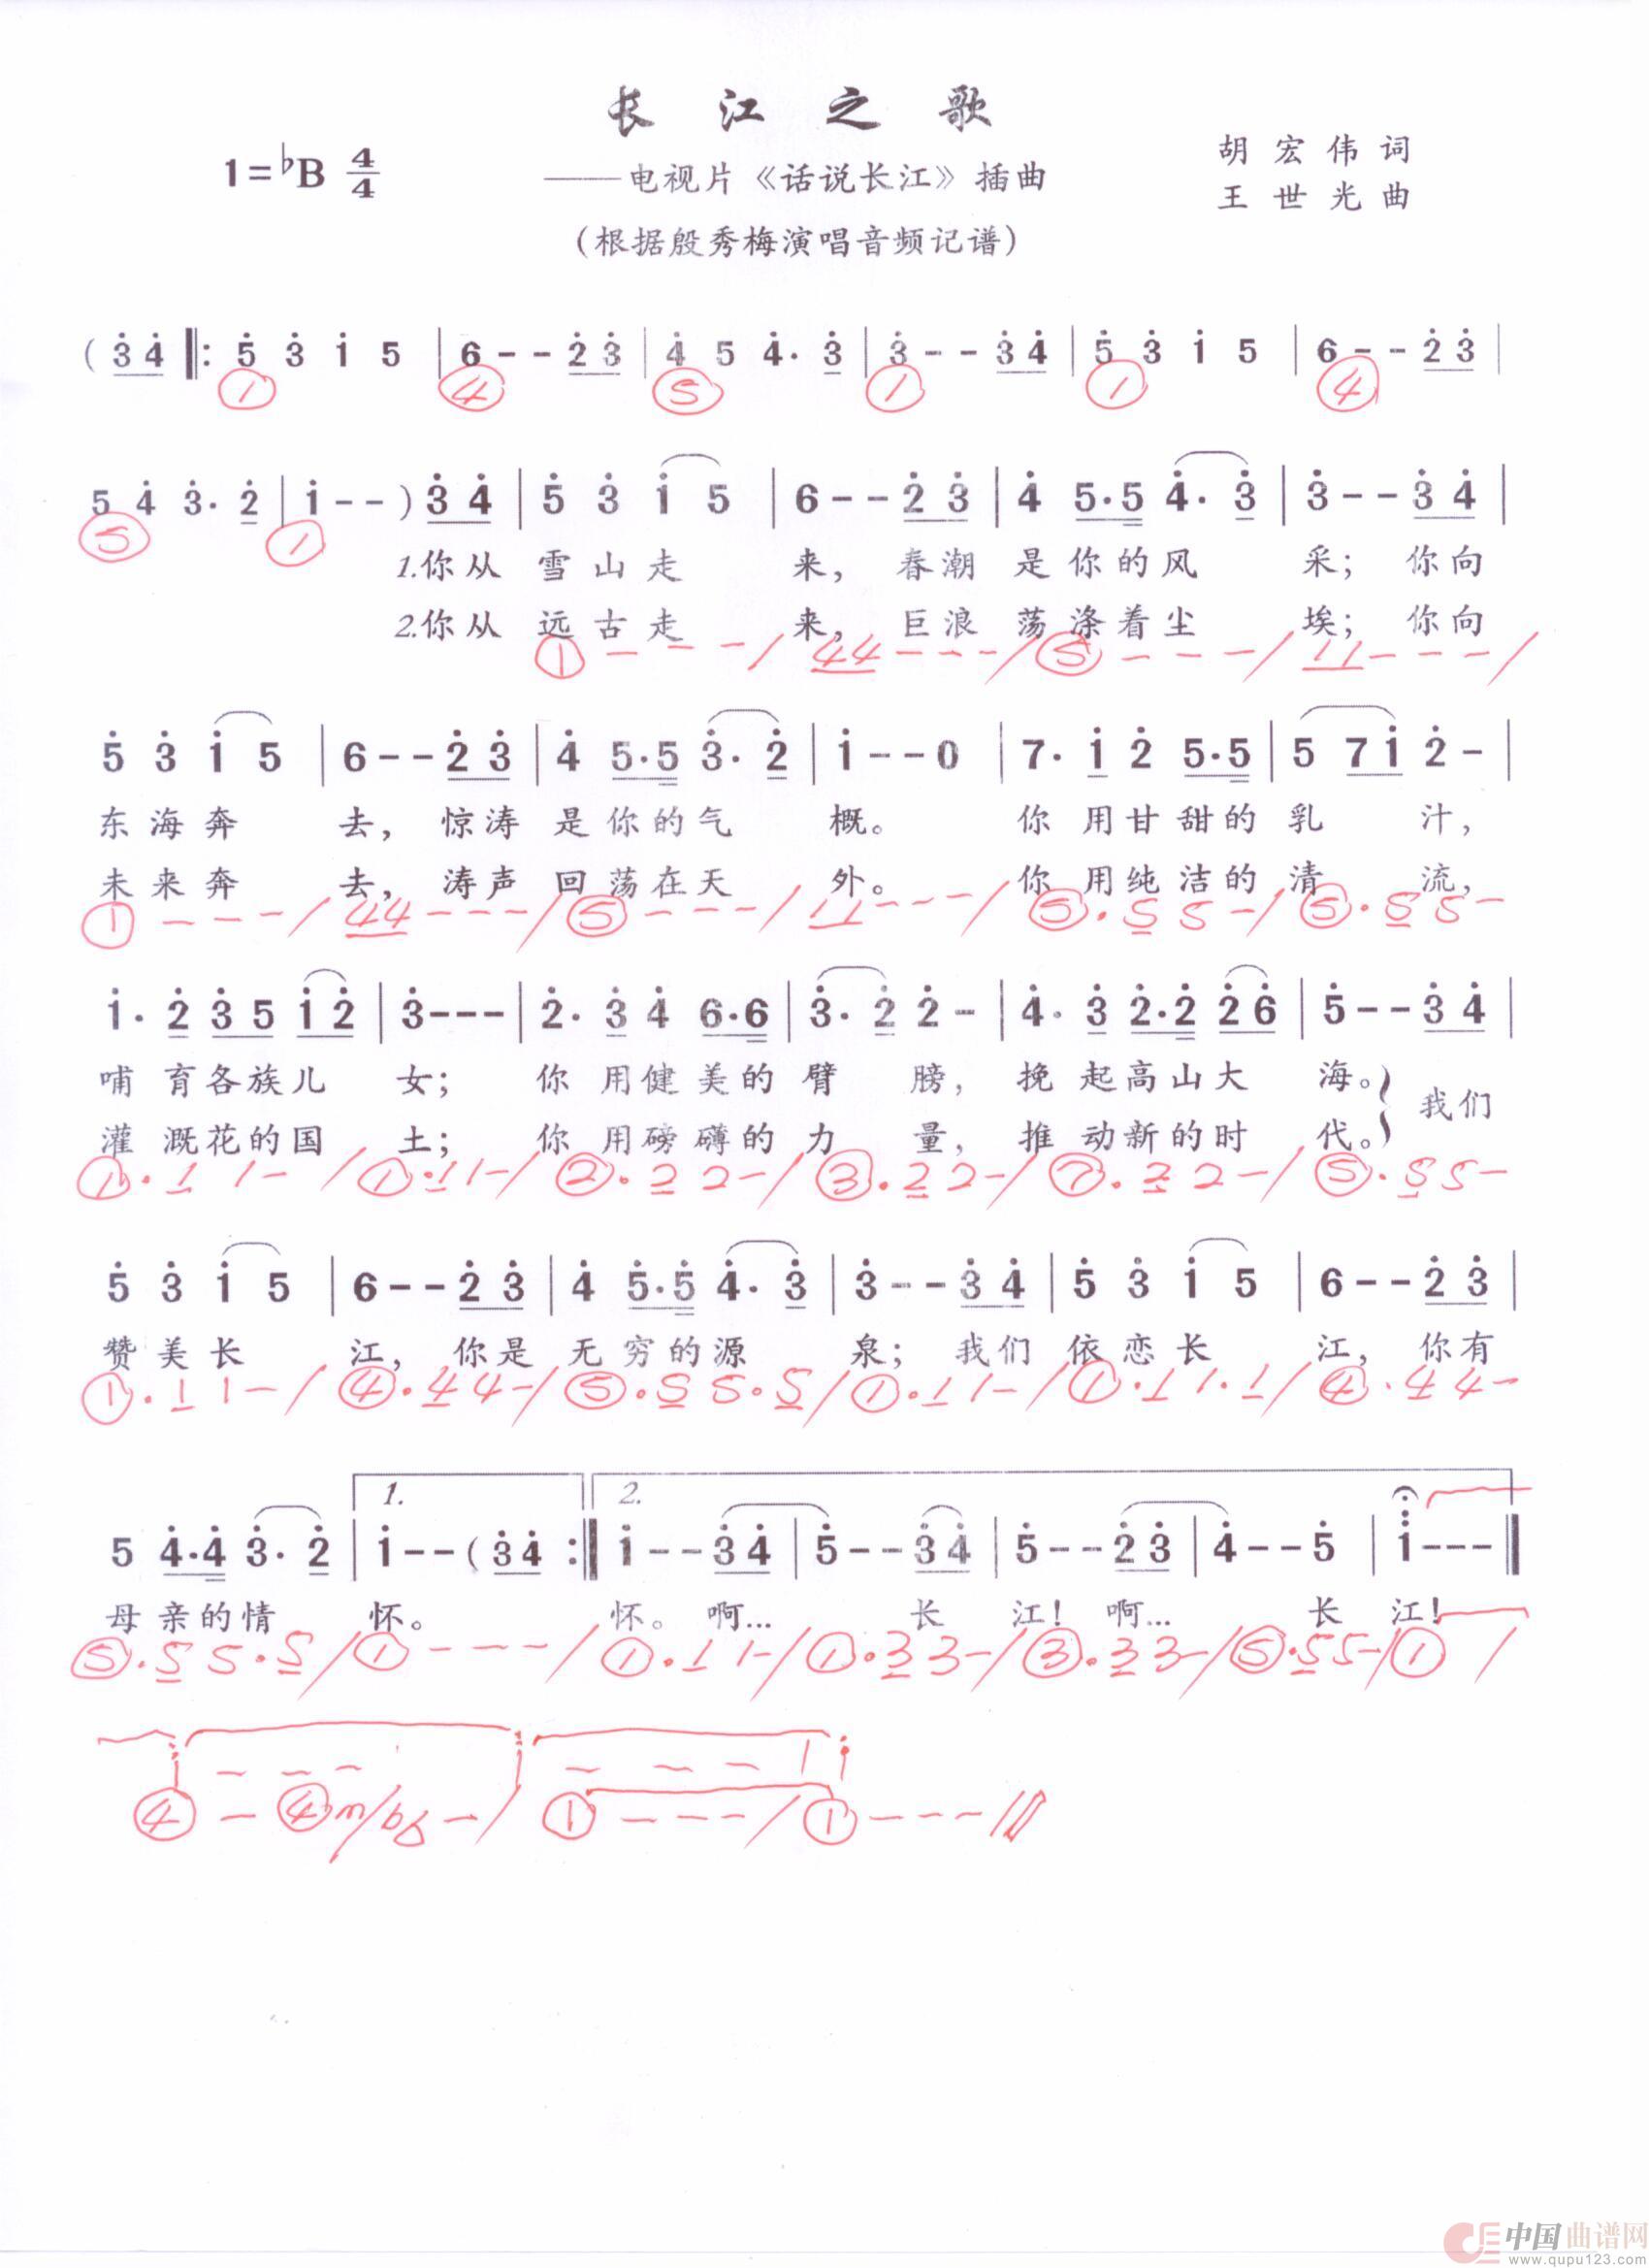 长 江 之 歌
1=♭B 4/4
——电视片《话说长江》插曲
胡 宏 伟 词
王 世 光 曲
（根据殷秀梅演唱音频记谱）
( 3̇ 4̇ ‖: 5̇ 3̇ 1̇ 5 | 6 - - 2̇ 3̇ | 4̇ 5 4̇· 3̇ | 3̇ - - 3̇ 4̇ | 5̇ 3̇ 1̇ 5 | 6 - - 2̇ 3̇ |
① ④ ⑤ ① ① ④
5 4̇ 3̇· 2̇ | 1̇ - - ) 3̇ 4̇ | 5̇ 3̇ 1̇ 5 | 6 - - 2̇ 3̇ | 4̇ 5·5 4̇· 3̇ | 3̇ - - 3̇ 4̇ |
⑤ ①
1.你从 雪山走 来，春潮 是你的风 采；你向
2.你从 远古走 来，巨浪 荡涤着尘 埃；你向
① - - - / 44 - - - / ⑤ - - - / 11 - - - /
5̇ 3̇ 1̇ 5 | 6 - - 2̇ 3̇ | 4̇ 5·5 3̇· 2̇ | 1̇ - - 0 | 7· 1̇ 2̇ 5·5 | 5 7 1̇ 2̇ - |
东海奔 去，惊涛 是你的气 概。 你 用甘甜的乳 汁，
未来奔 去，涛声 回荡在天 外。 你 用纯洁的清 流，
① - - - / 44 - - - / ⑤ - - - / 11 - - - / ⑤· 5 5 - / ⑤· 5 5 -
1̇· 2̇ 3̇ 5 1̇ 2̇ | 3̇ - - - | 2̇· 3̇ 4̇ 6·6 | 3̇· 2̇ 2̇ - | 4̇· 3̇ 2̇·2̇ 2̇ 6̇ | 5̇ - - 3̇ 4̇ |
哺 育各族儿 女； 你 用健美的臂 膀， 挽 起高山大 海。 我们
灌 溉花的国 土； 你 用磅礴的力 量， 推 动新的时 代。
①· 1 1 - / ①· 1 1 - / ②· 2 2 - / ③· 2 2 - / ⑦· 2 2 - / ⑤· 5 5 -
5̇ 3̇ 1̇ 5 | 6 - - 2̇ 3̇ | 4̇ 5̇·5̇ 4̇· 3̇ | 3̇ - - 3̇ 4̇ | 5̇ 3̇ 1̇ 5 | 6 - - 2̇ 3̇ |
赞美长 江，你是 无穷的源 泉；我们 依恋长 江，你有
①· 1 1 - / ④· 4 4 - / ⑤· 5 5· 5 / ①· 1 1 - / ①· 1 1· 1 / ④· 4 4 -
1. 2.
5 4̇·4̇ 3̇· 2̇ | 1̇ - - ( 3̇ 4̇ :‖ 1̇ - - 3̇ 4̇ | 5̇ - - 3̇ 4̇ | 5̇ - - 2̇ 3̇ | 4̇ - - 5̇ | 1̇ - - - ‖
母亲的情 怀。 怀。啊… 长 江！啊… 长 江！
⑤· 5 5· 5 / ① - - - / ①· 1 1 - / ①· 3 3 - / ③· 3 3 - / ⑤· 5 5 - / ① /
1 - - - 1 - - - 1 1
④ - ④m/b6 - / ① - - - / ① - - - ‖
中国曲谱网
www.qupu123.com